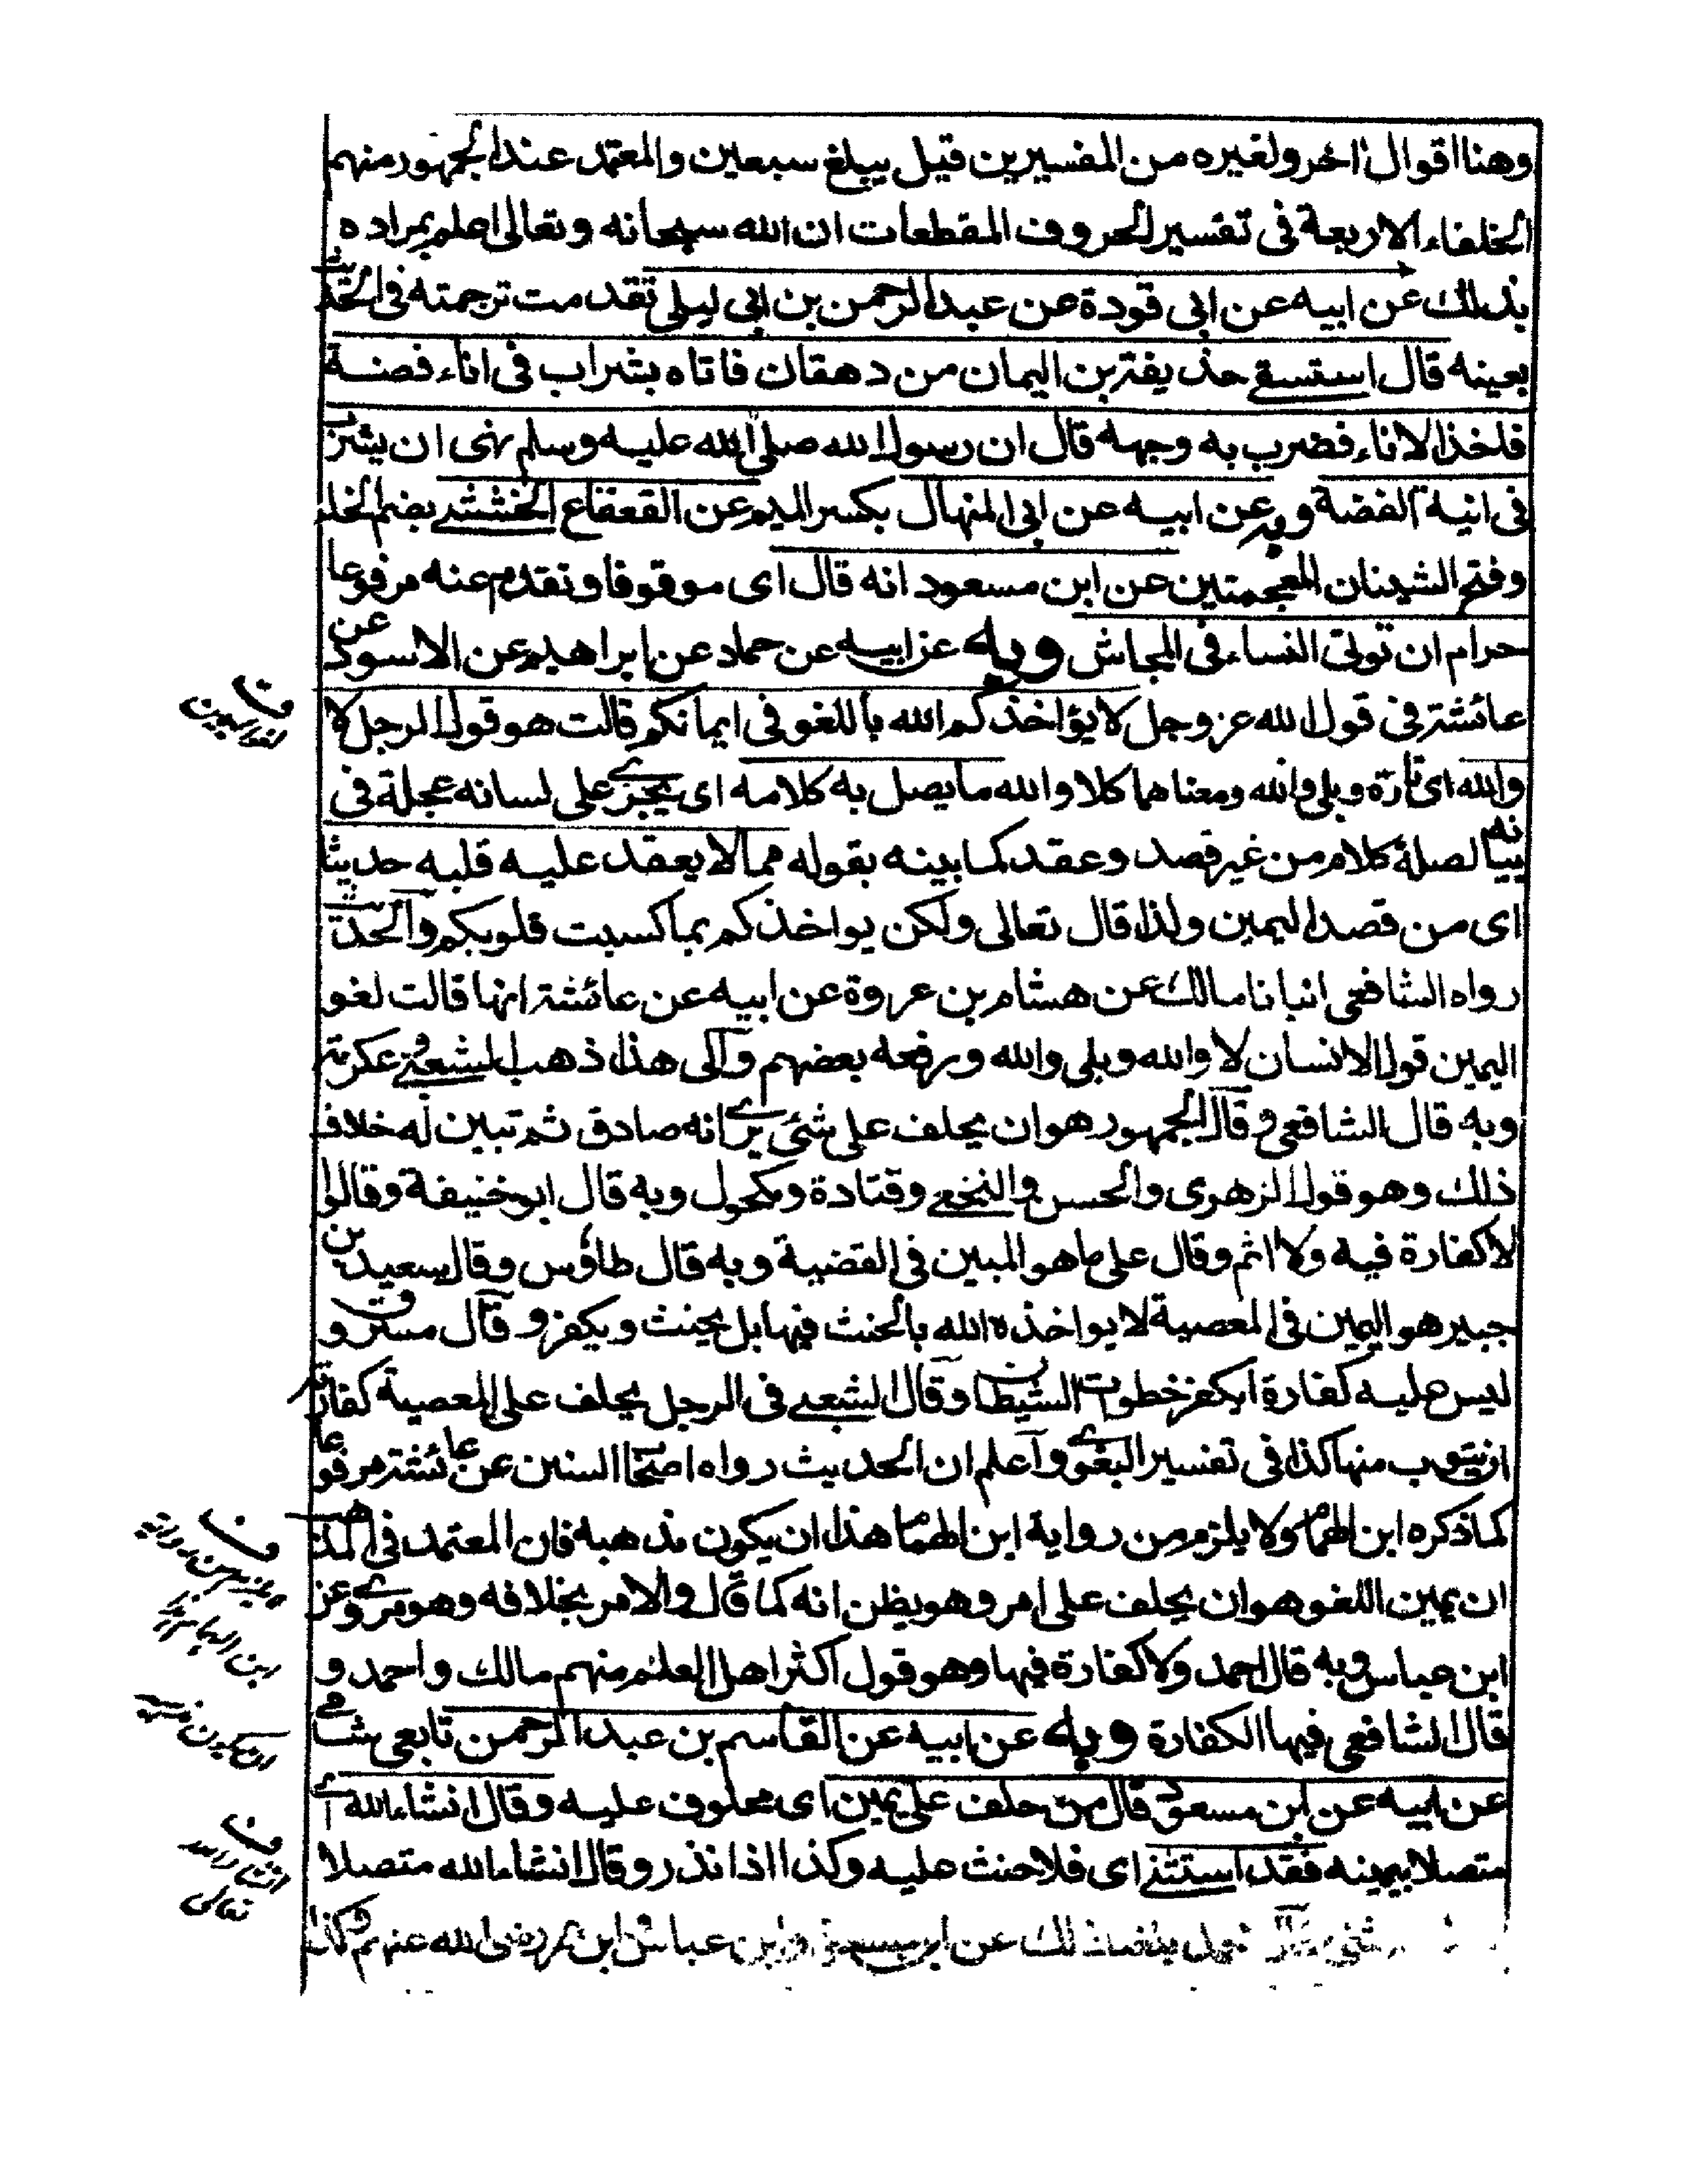 وهنا اقوال اخر ولغيره من المفسيرين قيل يبلغ سبعين والمعتمد عند الجمهور منهم
الخلفاء الاربعة فى تفسير الحروف المقطعات ان الله سبحانه وتعالى اعلم بمراده
بذلك عن ابيه عن ابى قودة عن عبد الرحمن بن ابى ليلى تقدمت ترجمته فى الحديث
بعينه قال استسقے حذيفة بن اليمان من دهقان فاتاه بشراب فى اناء فضة
فلخذ الاناء فضرب به وجهه قال ان رسول الله صلى الله عليه وسلم نهى ان يشرب
فى انية الفضة وبه عن ابيه عن ابى المنهال بكسر الميم عن القعقاع الخششے بضم الخاء
وفتح الشينان المعجمتين عن ابن مسعود انه قال اى موقوفا وتقدم عنه مرفوعا
حرام ان توتى النساء فى المحاش وبه عن ابيه عن حماد عن ابراهيم عن الاسود عن
عائشة فى قول الله عز وجل لا يؤاخذكم الله باللغو فى ايمانكم قالت هو قول الرجل لا
والله اى تارة وبلى والله ومعناهما كلا والله ما يصل به كلامه اى يجرے على لسانه عجلة فى
بيانه لصلة كلام من غير قصد وعقد كما بينه بقوله مما لا يعقد عليه قلبه حديثا
اى من قصد اليمين ولذا قال تعالى ولكن يواخذكم بما كسبت قلوبكم والحديث
رواه الشافعى انبانا مالك عن هشام بن عروة عن ابيه عن عائشة انها قالت لغو
اليمين قول الانسان لا والله وبلى والله ورفعه بعضهم والى هذا ذهب الشعبے وعكرمة
وبه قال الشافعى وقال الجمهور هو ان يحلف على شئ يرے انه صادق ثم تبين له خلاف
ذلك وهو قول الزهرى والحسن والنخعے وقتادة ومكحول وبه قال ابو خنيفة وقالوا
لا كفارة فيه ولا اثم وقال على ما هو المبين فى القضية وبه قال طاؤس وقال سعيد بن
جبير هو اليمين فى المعصية لا يواخذه الله بالحنث فيها بل يحنث ويكفر وقال مسروق
ليس عليه كفارة ايكفر خطوات الشيطان وقال الشعبے فى الرجل يحلف على المعصية كفارته
ان يتوب منها كذا فى تفسير البغوے واعلم ان الحديث رواه اصحاب السنين عن عائشة مرفوعا
كما ذكره ابن الهمام ولا يلزم من رواية ابن الهمام هذا ان يكون مذهبه فان المعتمد فى المذهب
ان يمين اللغو هو ان يحلف على امر وهو يظن انه كما قال والامر بخلافه وهو مروے عن
ابن عباس وبه قال احمد ولا كفارة فيها وهو قول اكثر اهل العلم منهم مالك واحمد و
قال الشافعى فيها الكفارة وبه عن ابيه عن القاسم بن عبد الرحمن تابعى شامى
عن ابيه عن ابن مسعود قال من حلف على يمين اى محلوف عليه وقال انشاء الله اى
متصلا بيمينه فقد استثنے اى فلا حنث عليه وكذا اذا نذر وقال انشاء الله متصلا
لك عن ابن مسعود وابن عباس وابن عمر رضى الله عنهم وكذا
ف
لغو اليمين
ف
ف
انشاء الله
تعالى